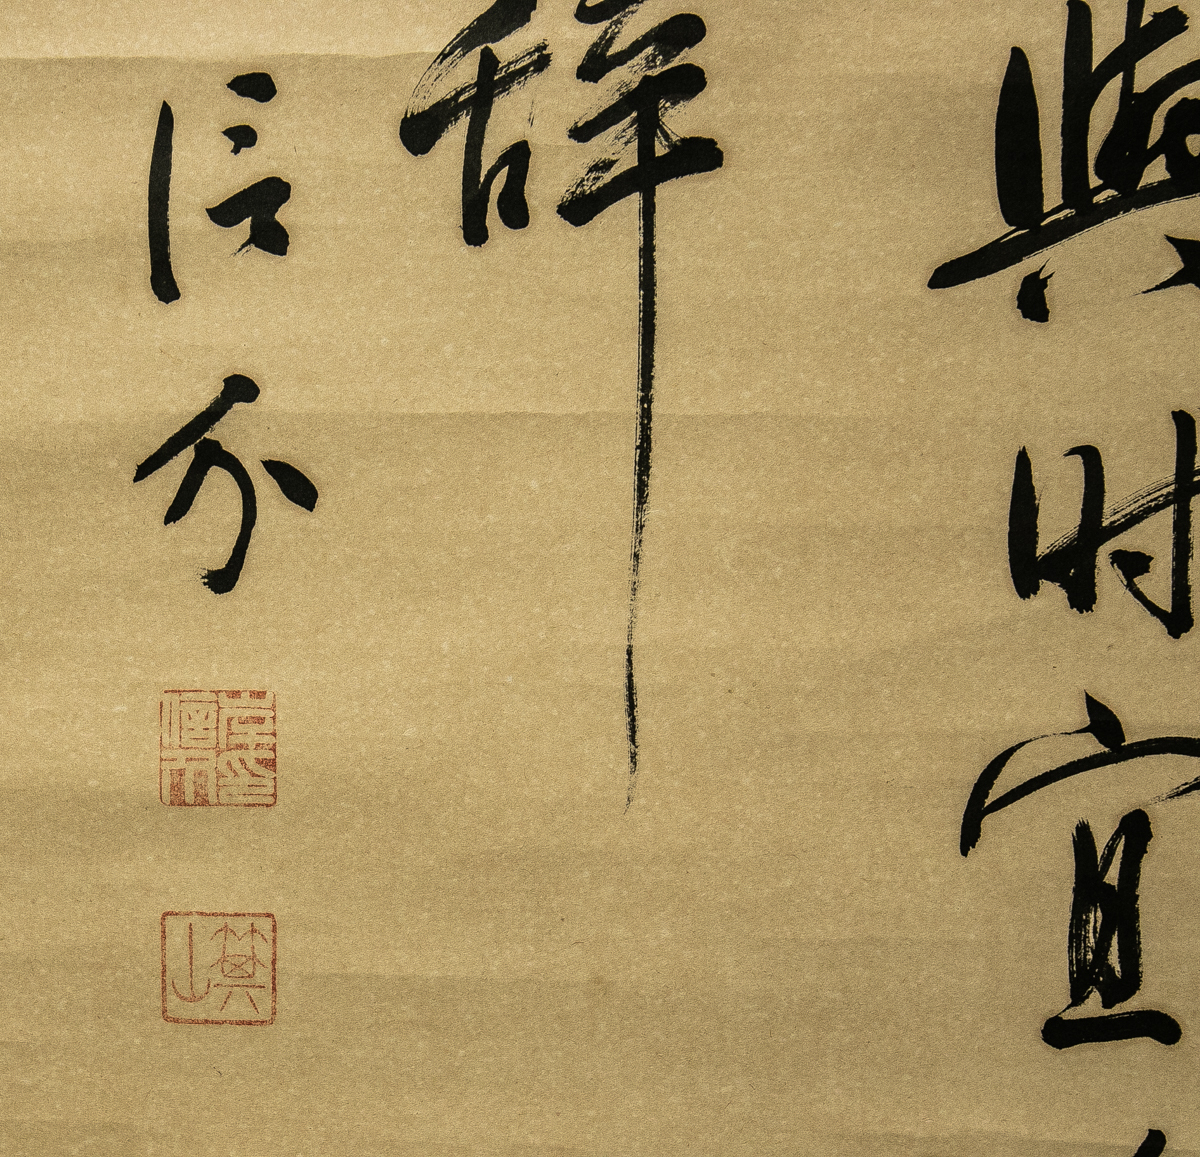 與時宜
辞
信介